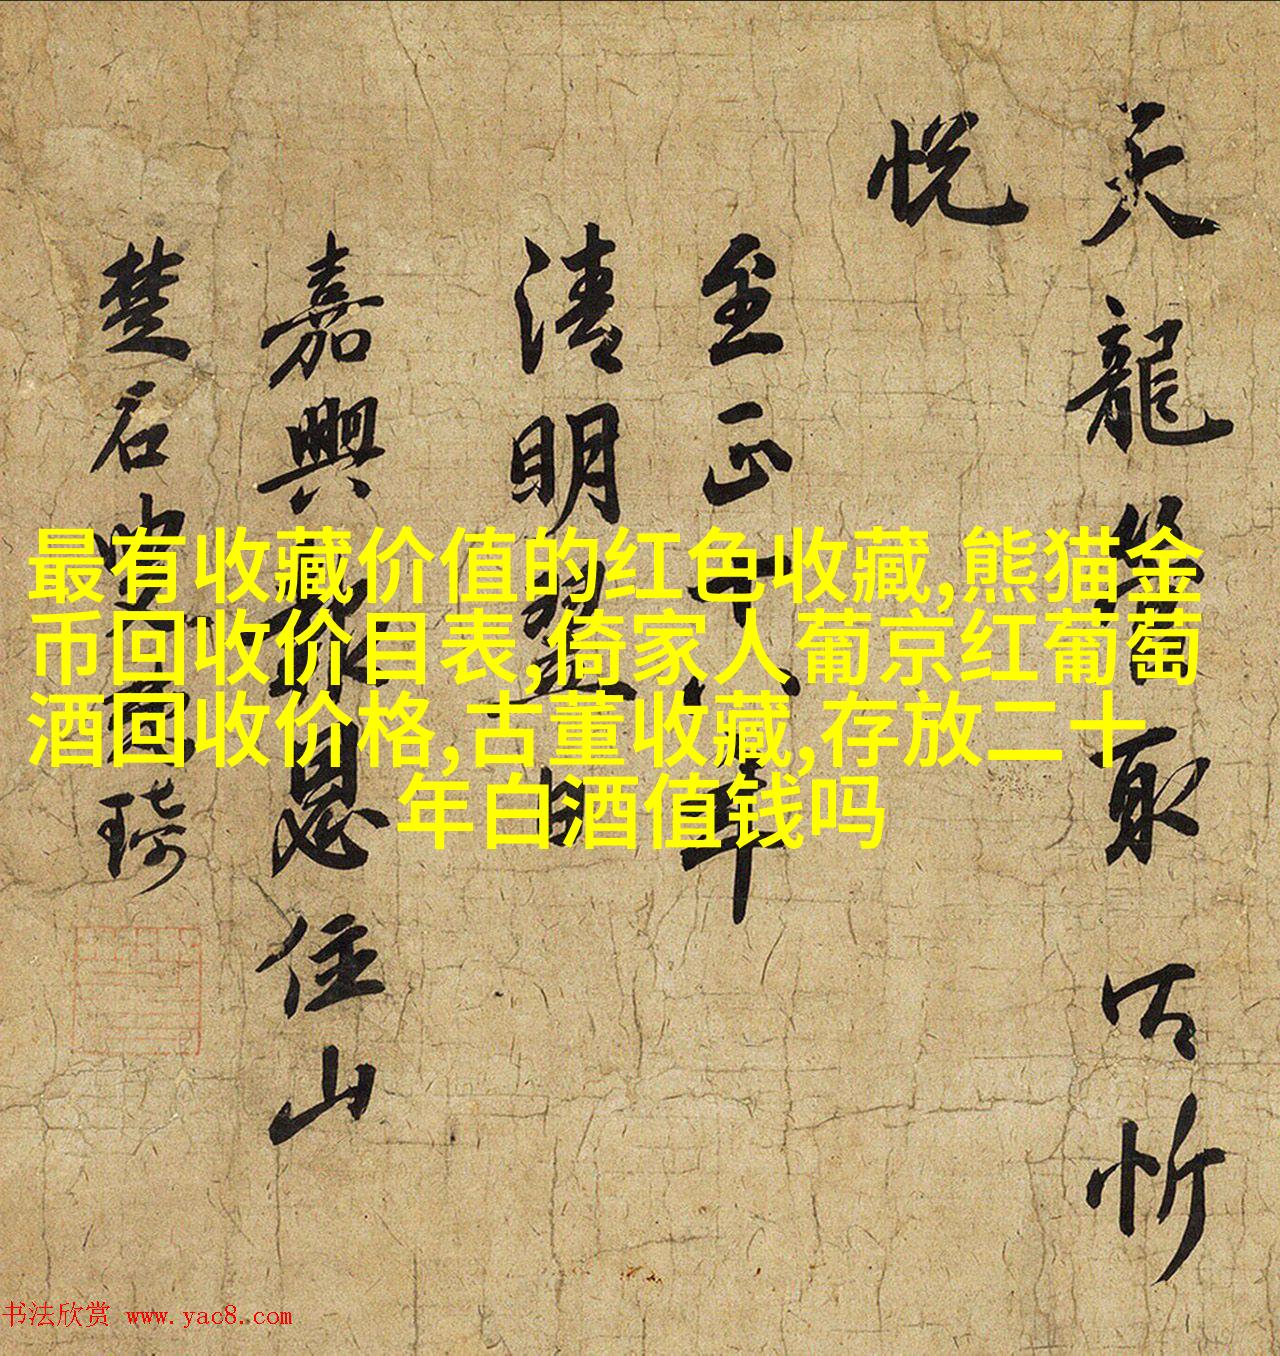 天龍
取古忻
悦
至正十八年
清明翌日
嘉興報恩住山
楚石
琦
最有收藏价值的红色收藏,熊猫金
币回收价目表,倚家人葡京红葡萄
酒回收价格,古董收藏,存放二十
年白酒值钱吗
书法欣赏 www.yac8.com